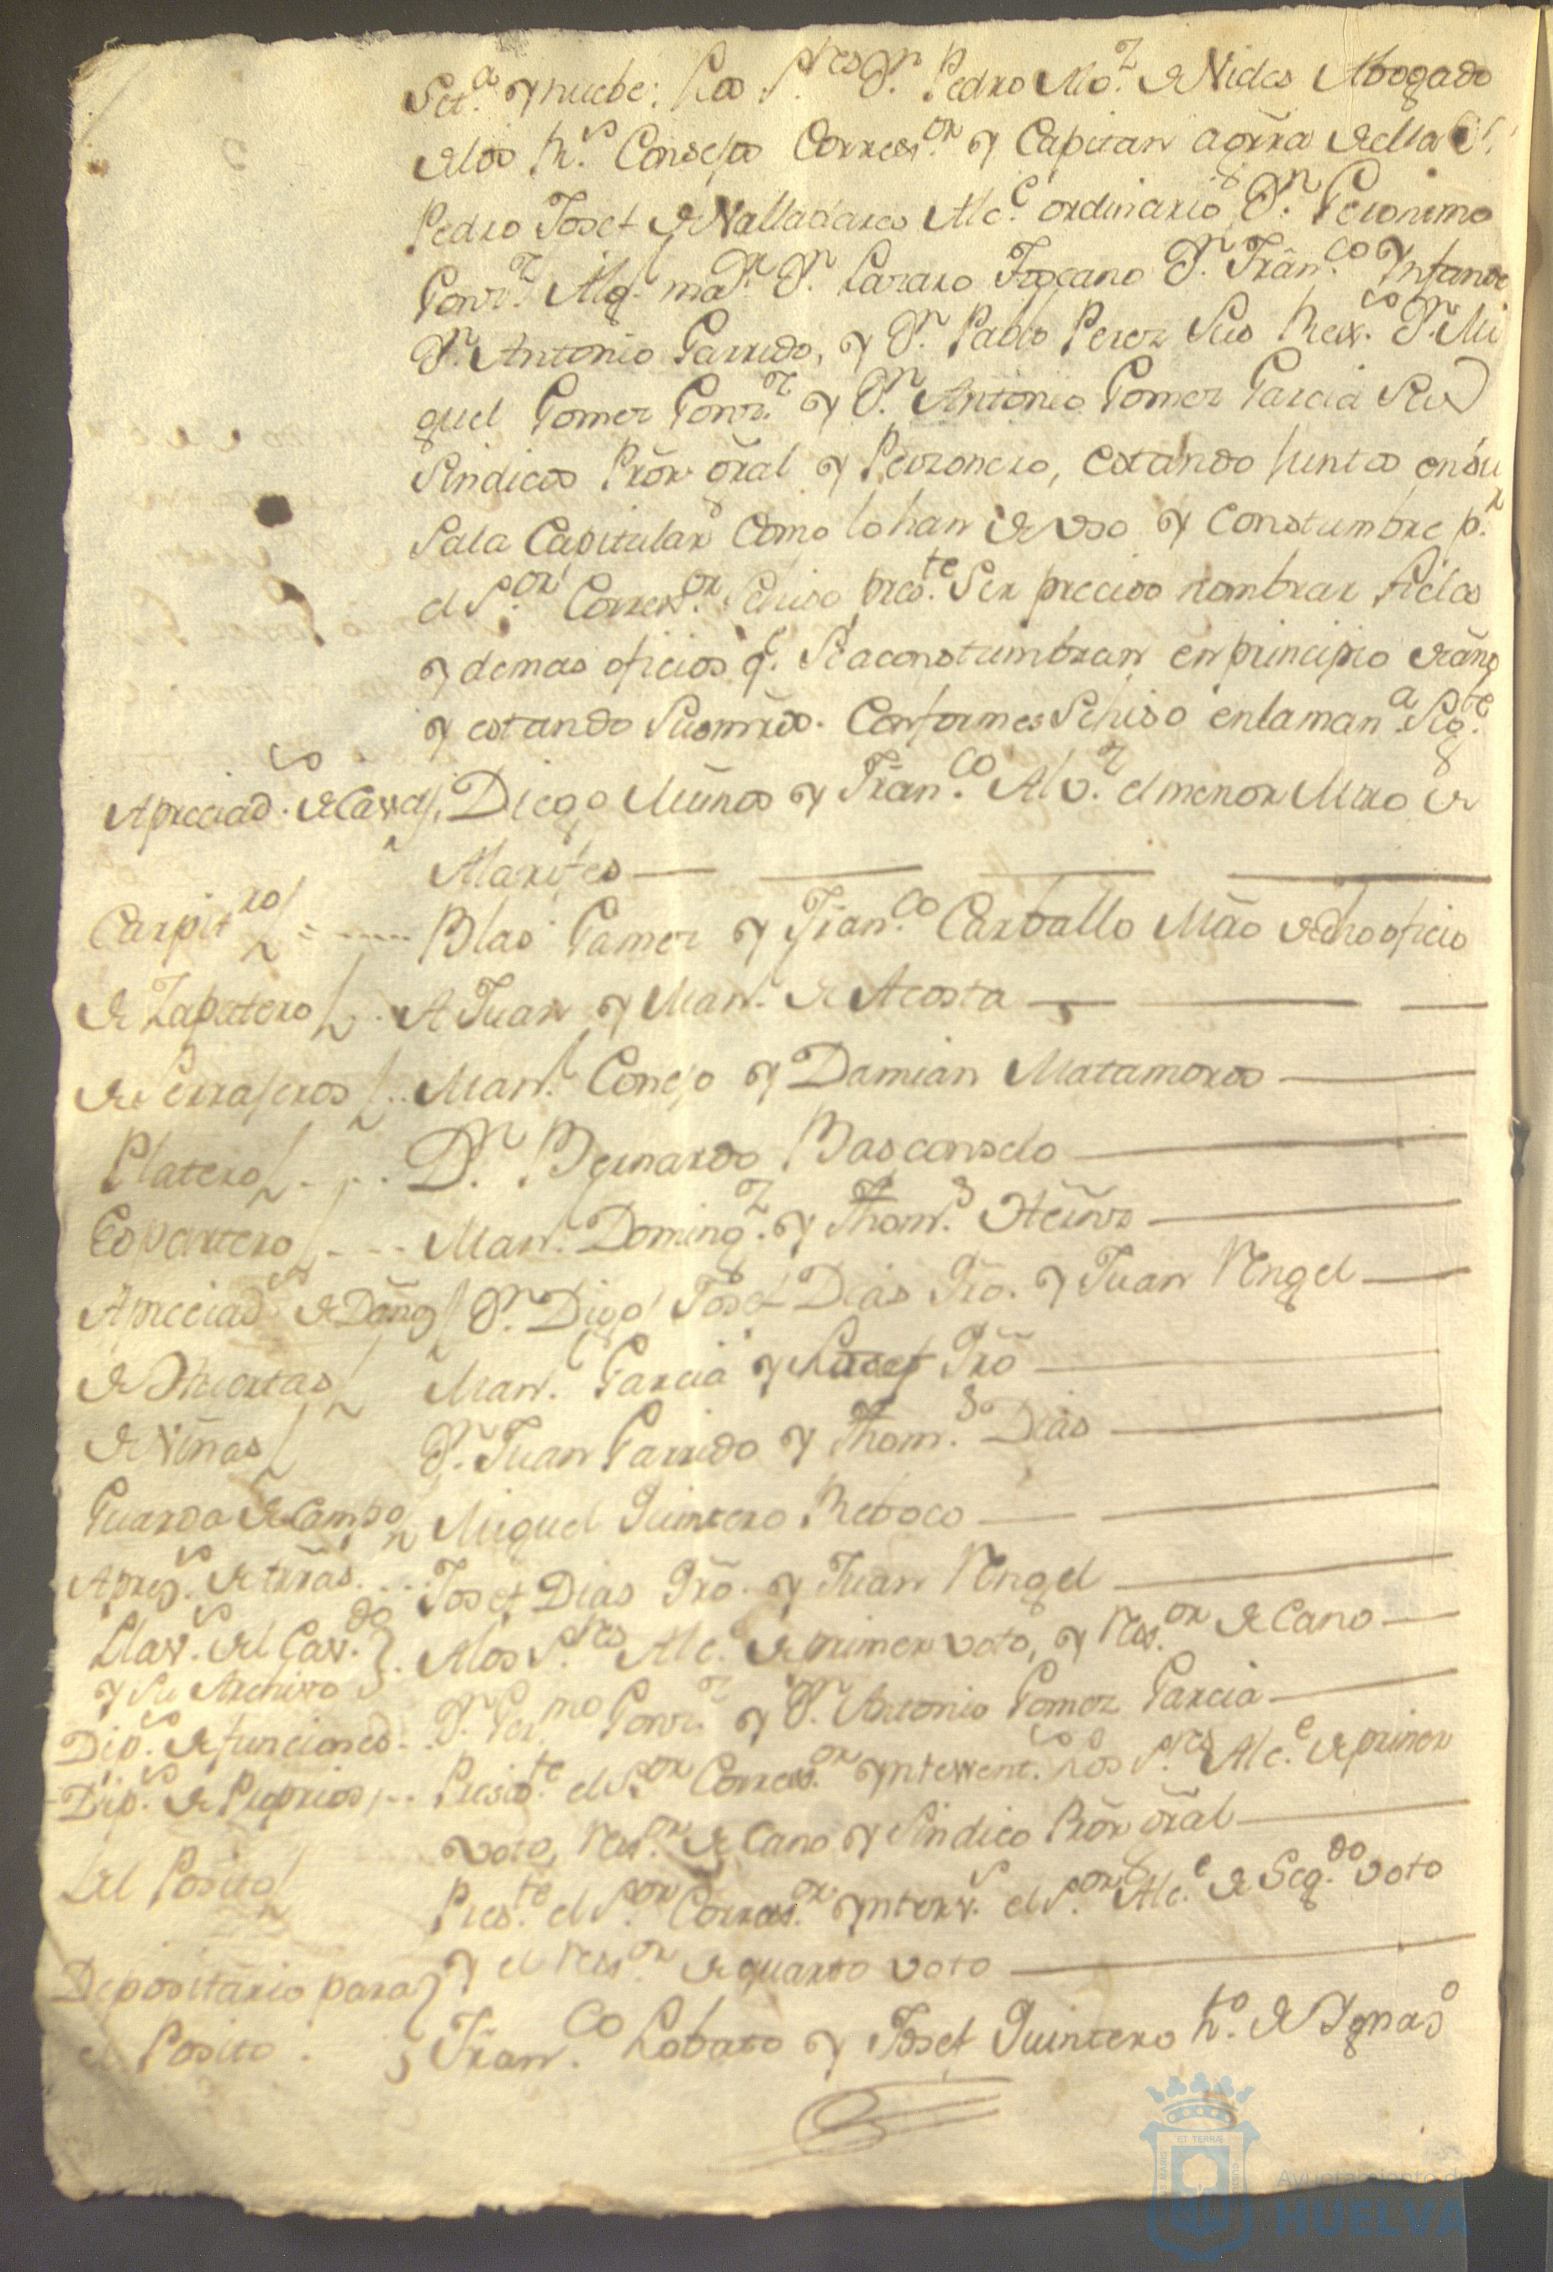 Set.ª y nuebe; Los S.res D.n Pedro Mo.z de Nides Abogado
de los R.s Consejos Corress.or y Capitan a grra de ella D.n
Pedro Josef de Valladares Alc.e ordinario, D.n Geronimo
Gonz.z Alg.l ma.r D.n Lazaro Toscano D.n Fran.co Ynfante
D.n Antonio Garrido, y D.n Pablo Perez Sus Rex.s D.n Mi
guel Gomez Gonz.z y D.n Antonio Gomez Garcia Sus
Sindicos Prōr grāl y Perzonero, estando Juntos en su
Sala Capitular como lo han de vso y Constumbre p.r
el S.or Corress.or Sehiso pres.te Ser preciso nombrar fieles
y demas oficios q.e Seaconstumbran en principio de año
y estando Sus mrds. Conformes Sehiso en la man.a Sig.te
Apreciad.s de Casas Diego Muños y Fran.co Alv.z el menor Mro de
Alarifes
Carpit.ro Blas Gamez y Fran.co Carballo Mro de dho oficio
de Zapatero A Juan y Man.l de Acosta
de Serrajeros Man.l Conejo y Damian Matamoros
Platero D.n Bernardo Basconselo
Espartero Man.l Doming.z y Thom.s
Apreciad.s de Daños D.n Diego Josef Dias Pro. y Juan Rengel
de Huertas Man.l Garcia y Pro
de Viñas D.n Juan Garrido y Thom.s Dias
Guarda de Campo Miguel Quintero Reboco
Apreg.s de trras Josef Dias Pro. y Juan Rengel
Llav.s del Cav.do A los S.res Alc.e de primer voto, y Res.or de Cano
y Su Archivo
Dip.s de funciones D.n Ger.mo Gonz.z y D.n Antonio Gomez Garcia
Dip.s de Proprios Presid.te el S.or Corress.or Yntervent.s Los S.res Alc.e de primer
voto, Res.or de Cano y Sindico Prōr grāl
Del Posito Pres.te el S.or Corress.or Ynterv.s el S.or Alc.e de Seg.do voto
y el Res.or de quarto voto
Depositario para
el Posito Fran.co Lobato y Josef Quintero h.o de Ygnas.o
MARIS
ET TERRÆ
CUSTODIA
Ayuntamiento de
HUELVA